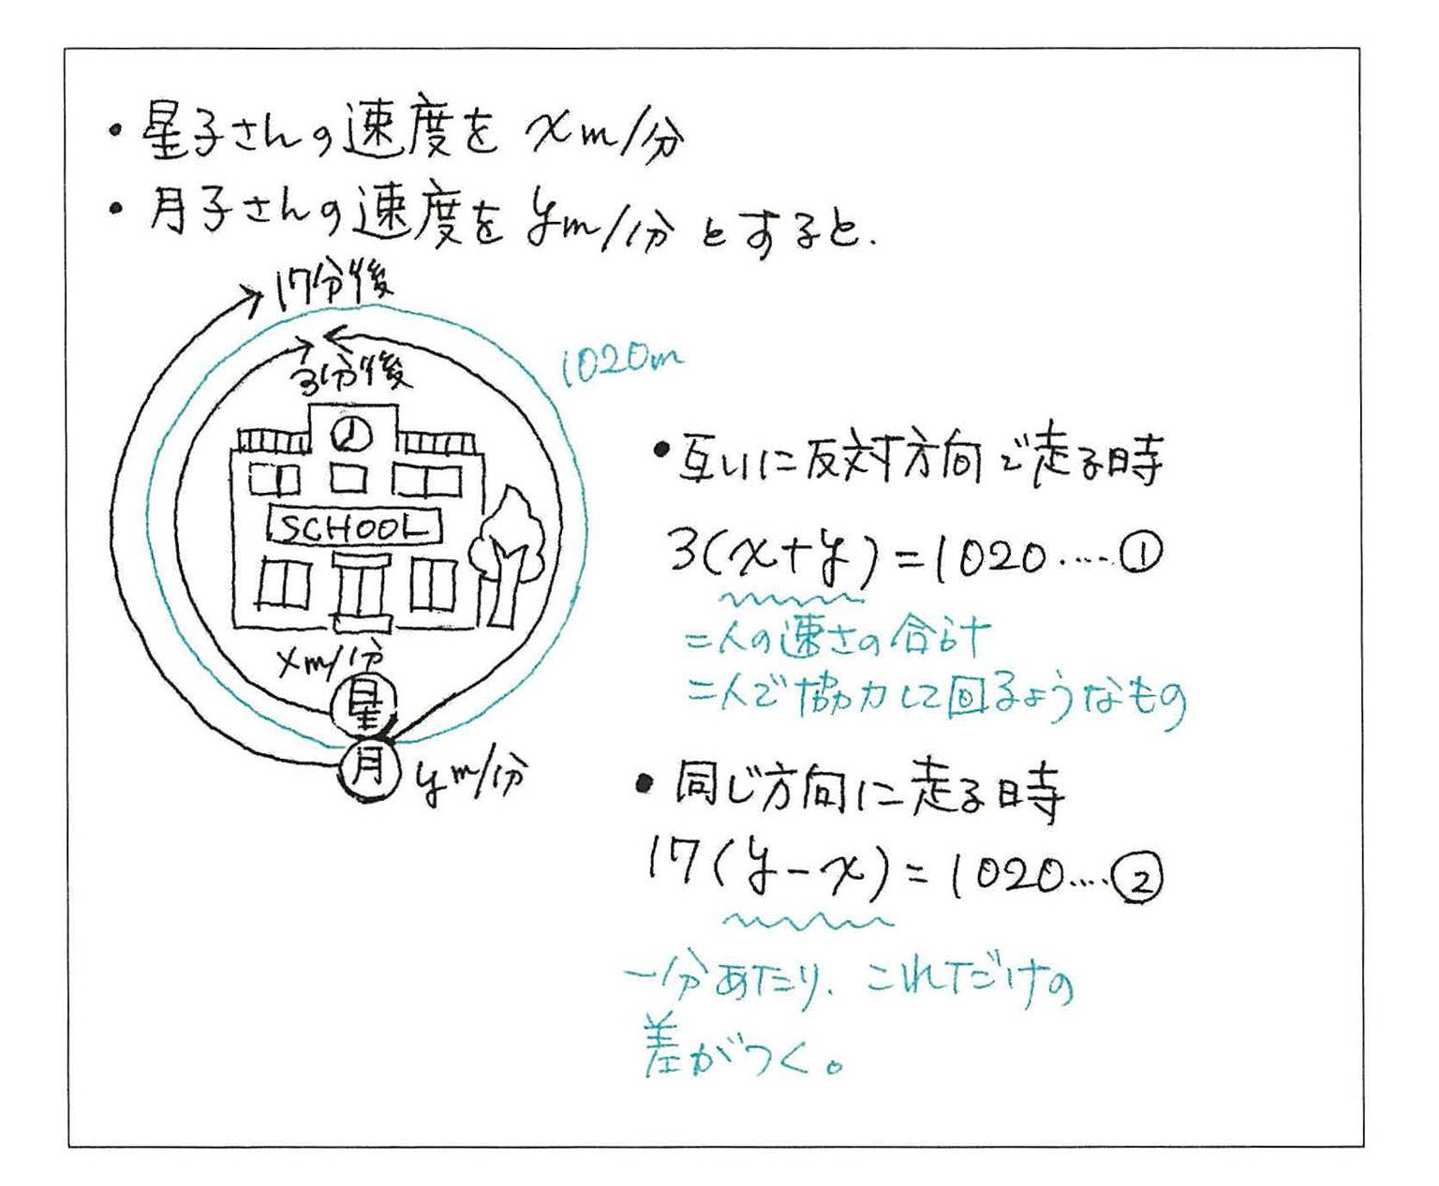 ・星子さんの速度を xm/分
・月子さんの速度を ym/分 とすると.
17分後
3分後
1020m
SCHOOL
xm/分
星
月
ym/分
・互いに反対方向で走る時
3(x+y)=1020……①
二人の速さの合計
二人で協力して回るようなもの
・同じ方向に走る時
17(y-x)=1020……②
一分あたり、これだけの
差がつく。